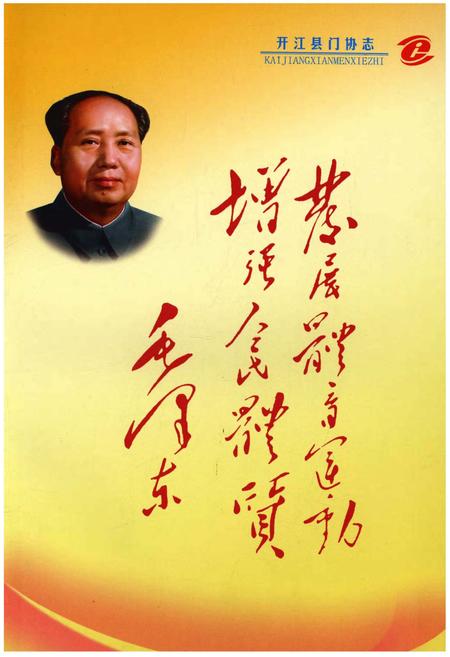 开江县门协志
KAIJIANGXIANMENXIEZHI
發展體育運動
增强人民體質
毛泽东